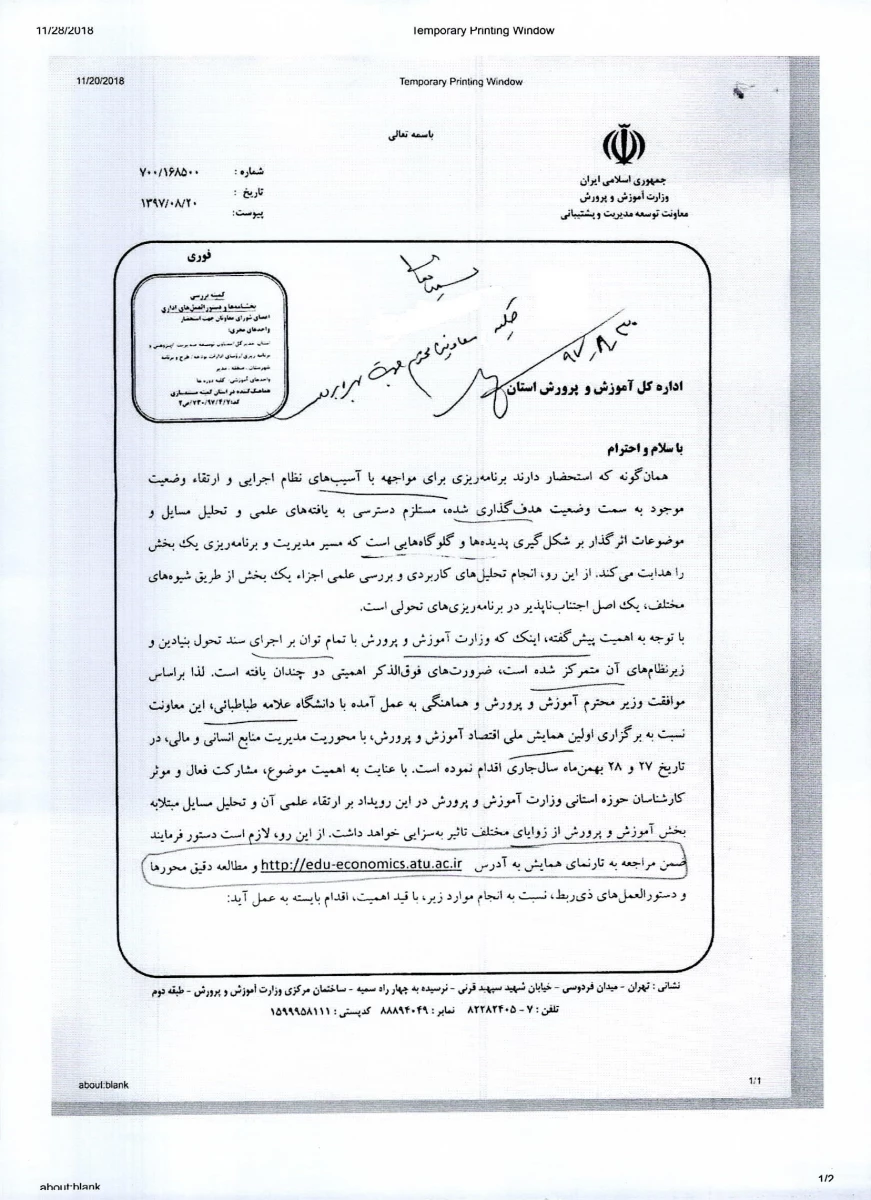 11/28/2018
Temporary Printing Window
11/20/2018
Temporary Printing Window
باسمه تعالی
جمهوری اسلامی ایران
وزارت آموزش و پرورش
معاونت توسعه مدیریت و پشتیبانی
شماره : ۷۰۰/۱۶۸۵۰۰
تاریخ : ۱۳۹۷/۰۸/۲۰
پیوست:
فوری
کمیته بررسی
بخشنامه‌ها و دستورالعمل‌های اداری
اعضای شورای معاونان جهت استحضار
واحدهای مجری:
شهرستان، منطقه، مدیر
واحدهای آموزشی: کلیه دوره ها
هماهنگ‌کننده در استان کمیته مستندسازی
۹۷/۸/۳۰
اداره کل آموزش و پرورش استان
با سلام و احترام
همان‌گونه که استحضار دارند برنامه‌ریزی برای مواجهه با آسیب‌های نظام اجرایی و ارتقاء وضعیت
موجود به سمت وضعیت هدف‌گذاری شده، مستلزم دسترسی به یافته‌های علمی و تحلیل مسایل و
موضوعات اثرگذار بر شکل‌گیری پدیده‌ها و گلوگاه‌هایی است که مسیر مدیریت و برنامه‌ریزی یک بخش
را هدایت می‌کند. از این رو، انجام تحلیل‌های کاربردی و بررسی علمی اجزاء یک بخش از طریق شیوه‌های
مختلف، یک اصل اجتناب‌ناپذیر در برنامه‌ریزی‌های تحولی است.
با توجه به اهمیت پیش‌گفته، اینک که وزارت آموزش و پرورش با تمام توان بر اجرای سند تحول بنیادین و
زیرنظام‌های آن متمرکز شده است، ضرورت‌های فوق‌الذکر اهمیتی دو چندان یافته است. لذا براساس
موافقت وزیر محترم آموزش و پرورش و هماهنگی به عمل آمده با دانشگاه علامه طباطبائی، این معاونت
نسبت به برگزاری اولین همایش ملی اقتصاد آموزش و پرورش، با محوریت مدیریت منابع انسانی و مالی، در
تاریخ ۲۷ و ۲۸ بهمن‌ماه سال‌جاری اقدام نموده است. با عنایت به اهمیت موضوع، مشارکت فعال و موثر
کارشناسان حوزه استانی وزارت آموزش و پرورش در این رویداد بر ارتقاء علمی آن و تحلیل مسایل مبتلابه
بخش آموزش و پرورش از زوایای مختلف تاثیر به‌سزایی خواهد داشت. از این رو، لازم است دستور فرمایند
ضمن مراجعه به تارنمای همایش به آدرس http://edu-economics.atu.ac.ir و مطالعه دقیق محورها
و دستورالعمل‌های ذی‌ربط، نسبت به انجام موارد زیر، با قید اهمیت، اقدام بایسته به عمل آید:
نشانی : تهران - میدان فردوسی - خیابان شهید سپهبد قرنی - نرسیده به چهار راه سمیه - ساختمان مرکزی وزارت آموزش و پرورش - طبقه دوم
تلفن : ۷ - ۸۲۲۸۲۴۰۵ نمابر : ۸۸۸۹۴۰۴۹ کدپستی : ۱۵۹۹۹۵۸۱۱۱
about:blank
1/1
about:blank
1/2